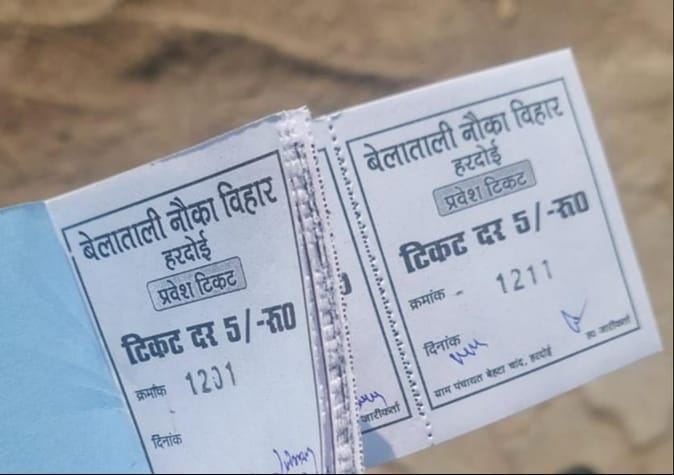 बेलाताली नौका विहार
हरदोई
प्रवेश टिकट
टिकट दर 5/-रु0
क्रमांक 1201
दिनांक
जारीकर्ता
बेलाताली नौका विहार
हरदोई
प्रवेश टिकट
टिकट दर 5/-रु0
क्रमांक - 1211
दिनांक
ह0 जारीकर्ता
ग्राम पंचायत बेहटा चांद, हरदोई